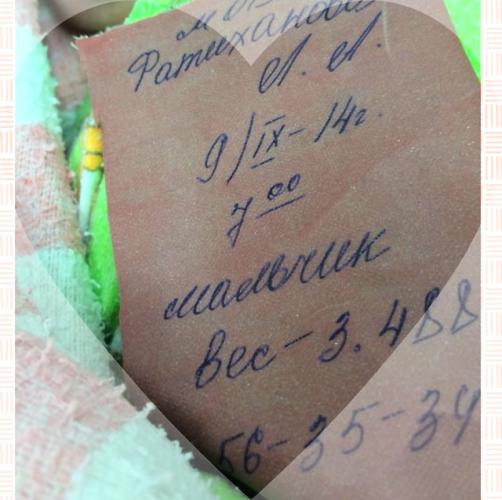 Фатиханова
Л. Л.
9/IX - 14г.
7 00
мальчик
Вес - 3.488
56 - 35 - 34